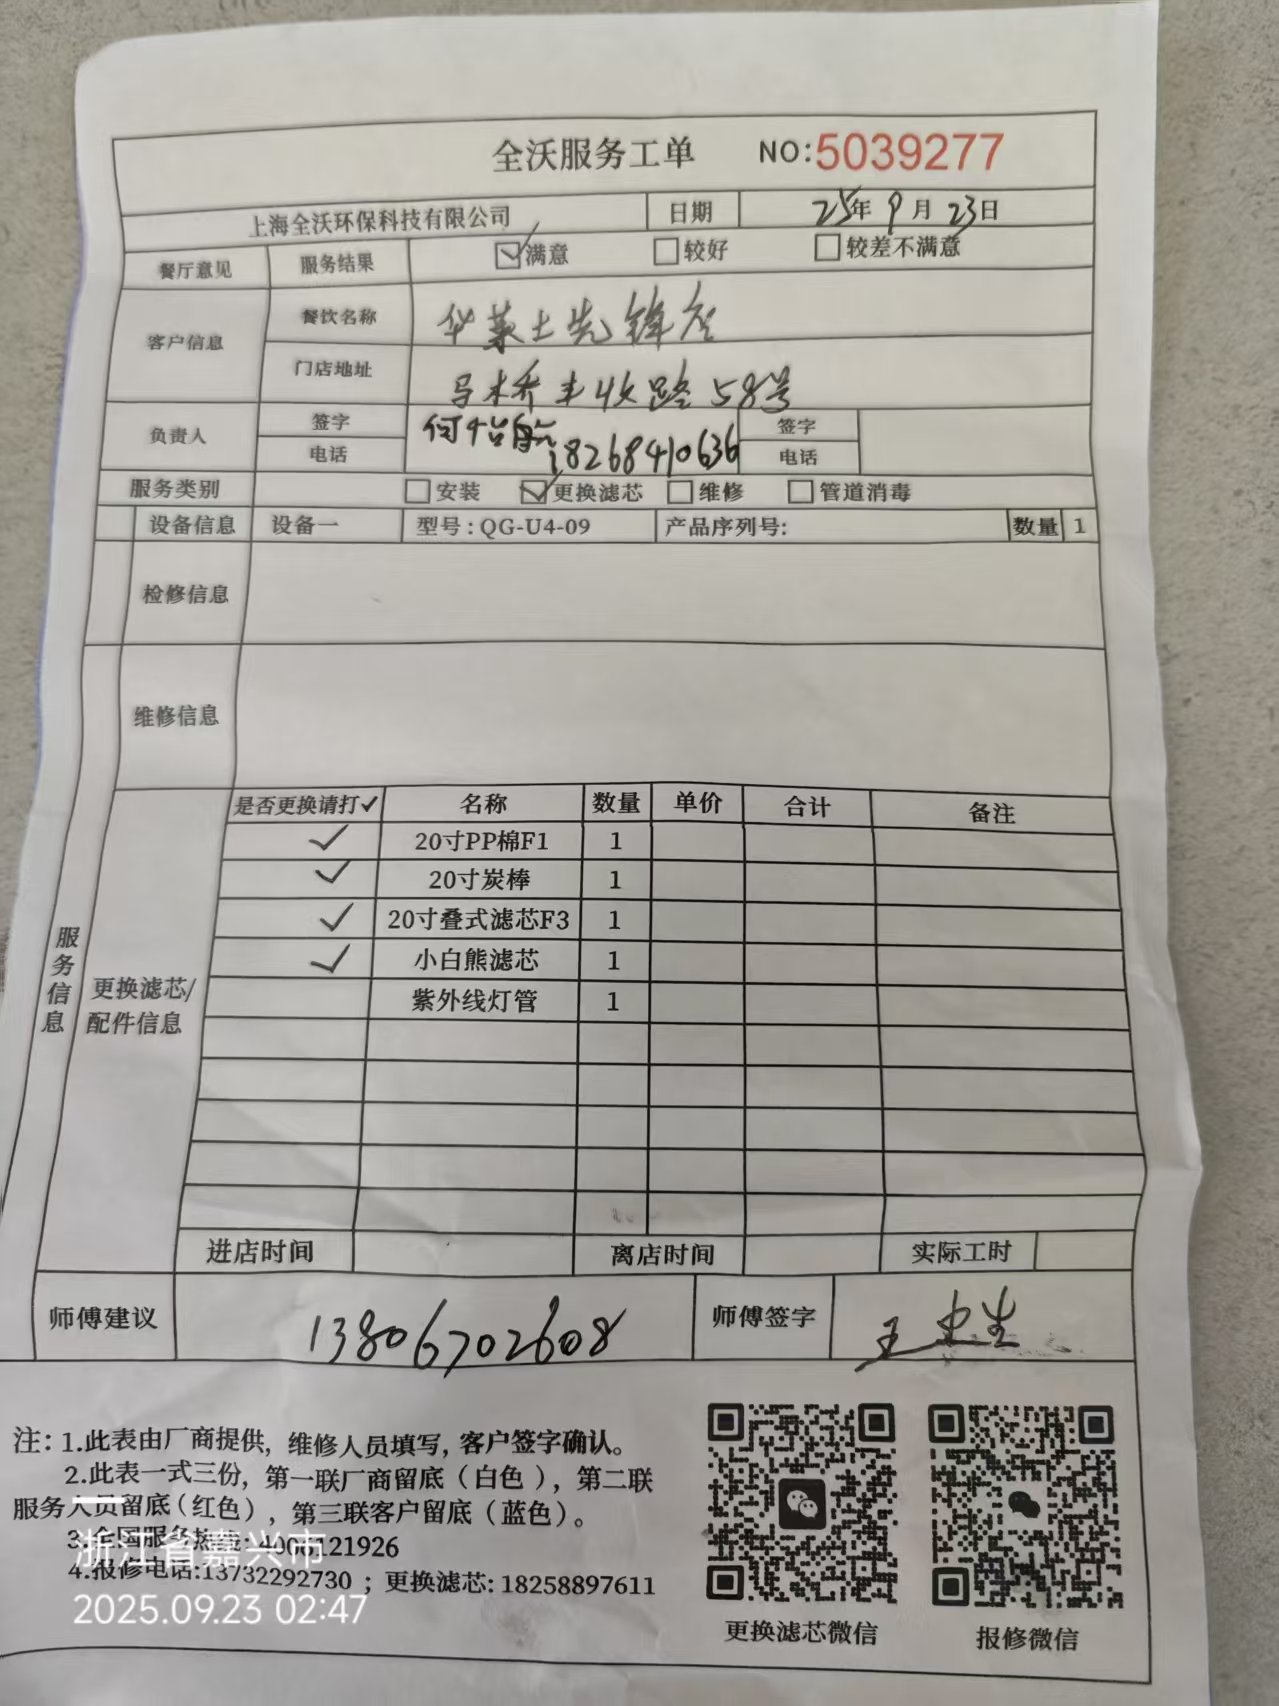 全沃服务工单 NO:5039277
上海全沃环保科技有限公司 日期 25年9月23日
餐厅意见 服务结果 ☑满意 □较好 □较差不满意
客户信息 餐饮名称 华莱士先锋店
门店地址 马木桥丰收路58号
负责人 签字 何怡航 签字
电话 18268410636 电话
服务类别 □安装 ☑更换滤芯 □维修 □管道消毒
设备信息 设备一 型号:QG-U4-09 产品序列号: 数量 1
检修信息
维修信息
服务信息
更换滤芯/
配件信息
是否更换请打✓ 名称 数量 单价 合计 备注
✓ 20寸PP棉F1 1
✓ 20寸炭棒 1
✓ 20寸叠式滤芯F3 1
✓ 小白熊滤芯 1
紫外线灯管 1
进店时间 离店时间 实际工时
师傅建议 13806702608 师傅签字 王 生
注:1.此表由厂商提供,维修人员填写,客户签字确认。
2.此表一式三份,第一联厂商留底(白色),第二联
服务人员留底(红色),第三联客户留底(蓝色)。
3.全国服务热线:4006121926
4.报修电话:13732292730;更换滤芯:18258897611
更换滤芯微信 报修微信
浙江省嘉兴市
2025.09.23 02:47